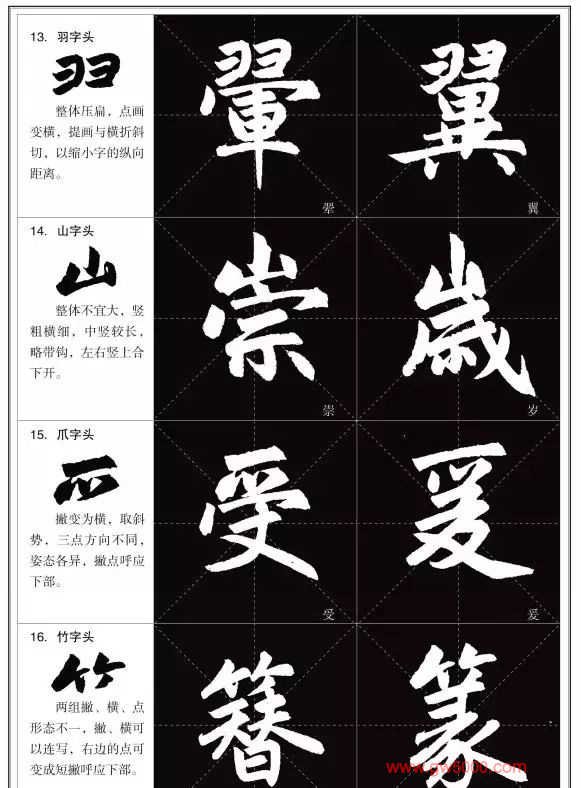 13. 羽字头
羽
整体压扁，点画
变横，提画与横折斜
切，以缩小字的纵向
距离。
翬
翚
翼
翼
14. 山字头
山
整体不宜大，竖
粗横细，中竖较长，
略带钩，左右竖上合
下开。
崇
崇
歲
岁
15. 爪字头
爫
撇变为横，取斜
势，三点方向不同，
姿态各异，撇点呼应
下部。
受
受
爰
爰
16. 竹字头
竹
两组撇、横、点
形态不一，撇、横可
以连写，右边的点可
变成短撇呼应下部。
簪
篆
www.gw5000.com